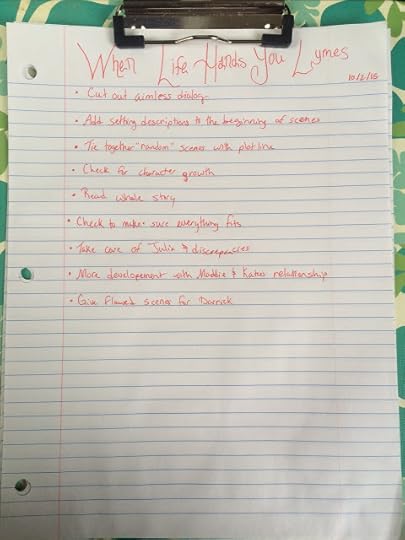 When Life Hands You Lymes
10/2/15
• Cut out aimless dialog
• Add setting descriptions to the beginning of scenes
• Tie together "random" scenes with plotline
• Check for character growth
• Read whole story
• Check to make sure everything fits
• Take care of Julia discrepencies
• More developement with Maddie & Kates relationship
• Give flawed scenes for Darrick